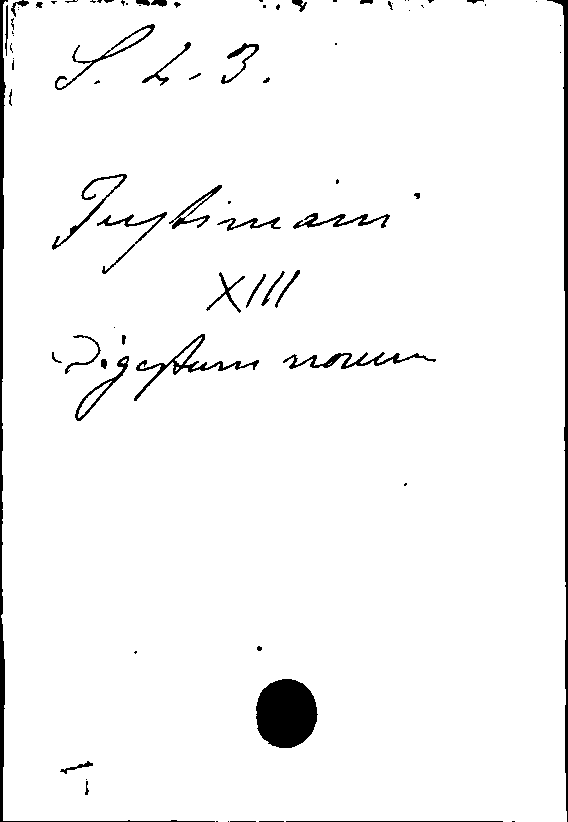 S. L. 3.
Justiniani
XIII
Digestum novum